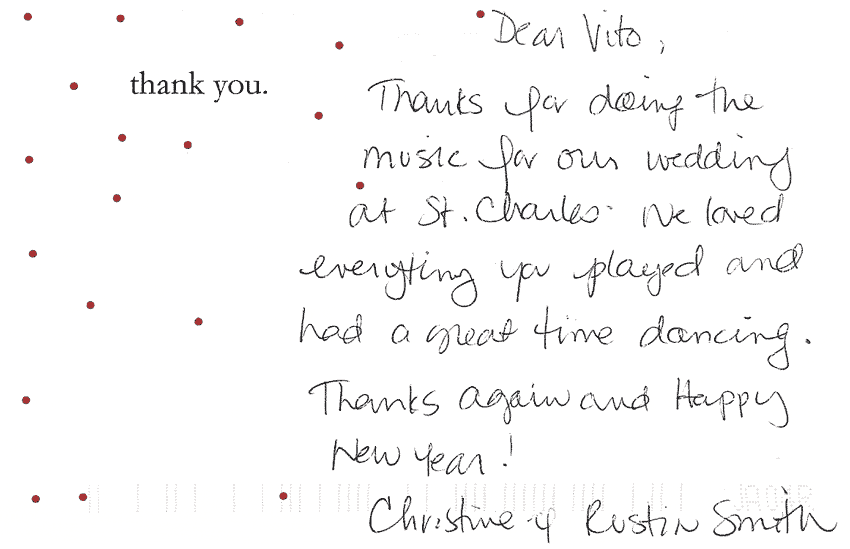 thank you.
Dear Vito,
Thanks for doing the
music for our wedding
at St. Charles. We loved
everything you played and
had a great time dancing.
Thanks again and Happy
New Year!
Christine & Rustin Smith